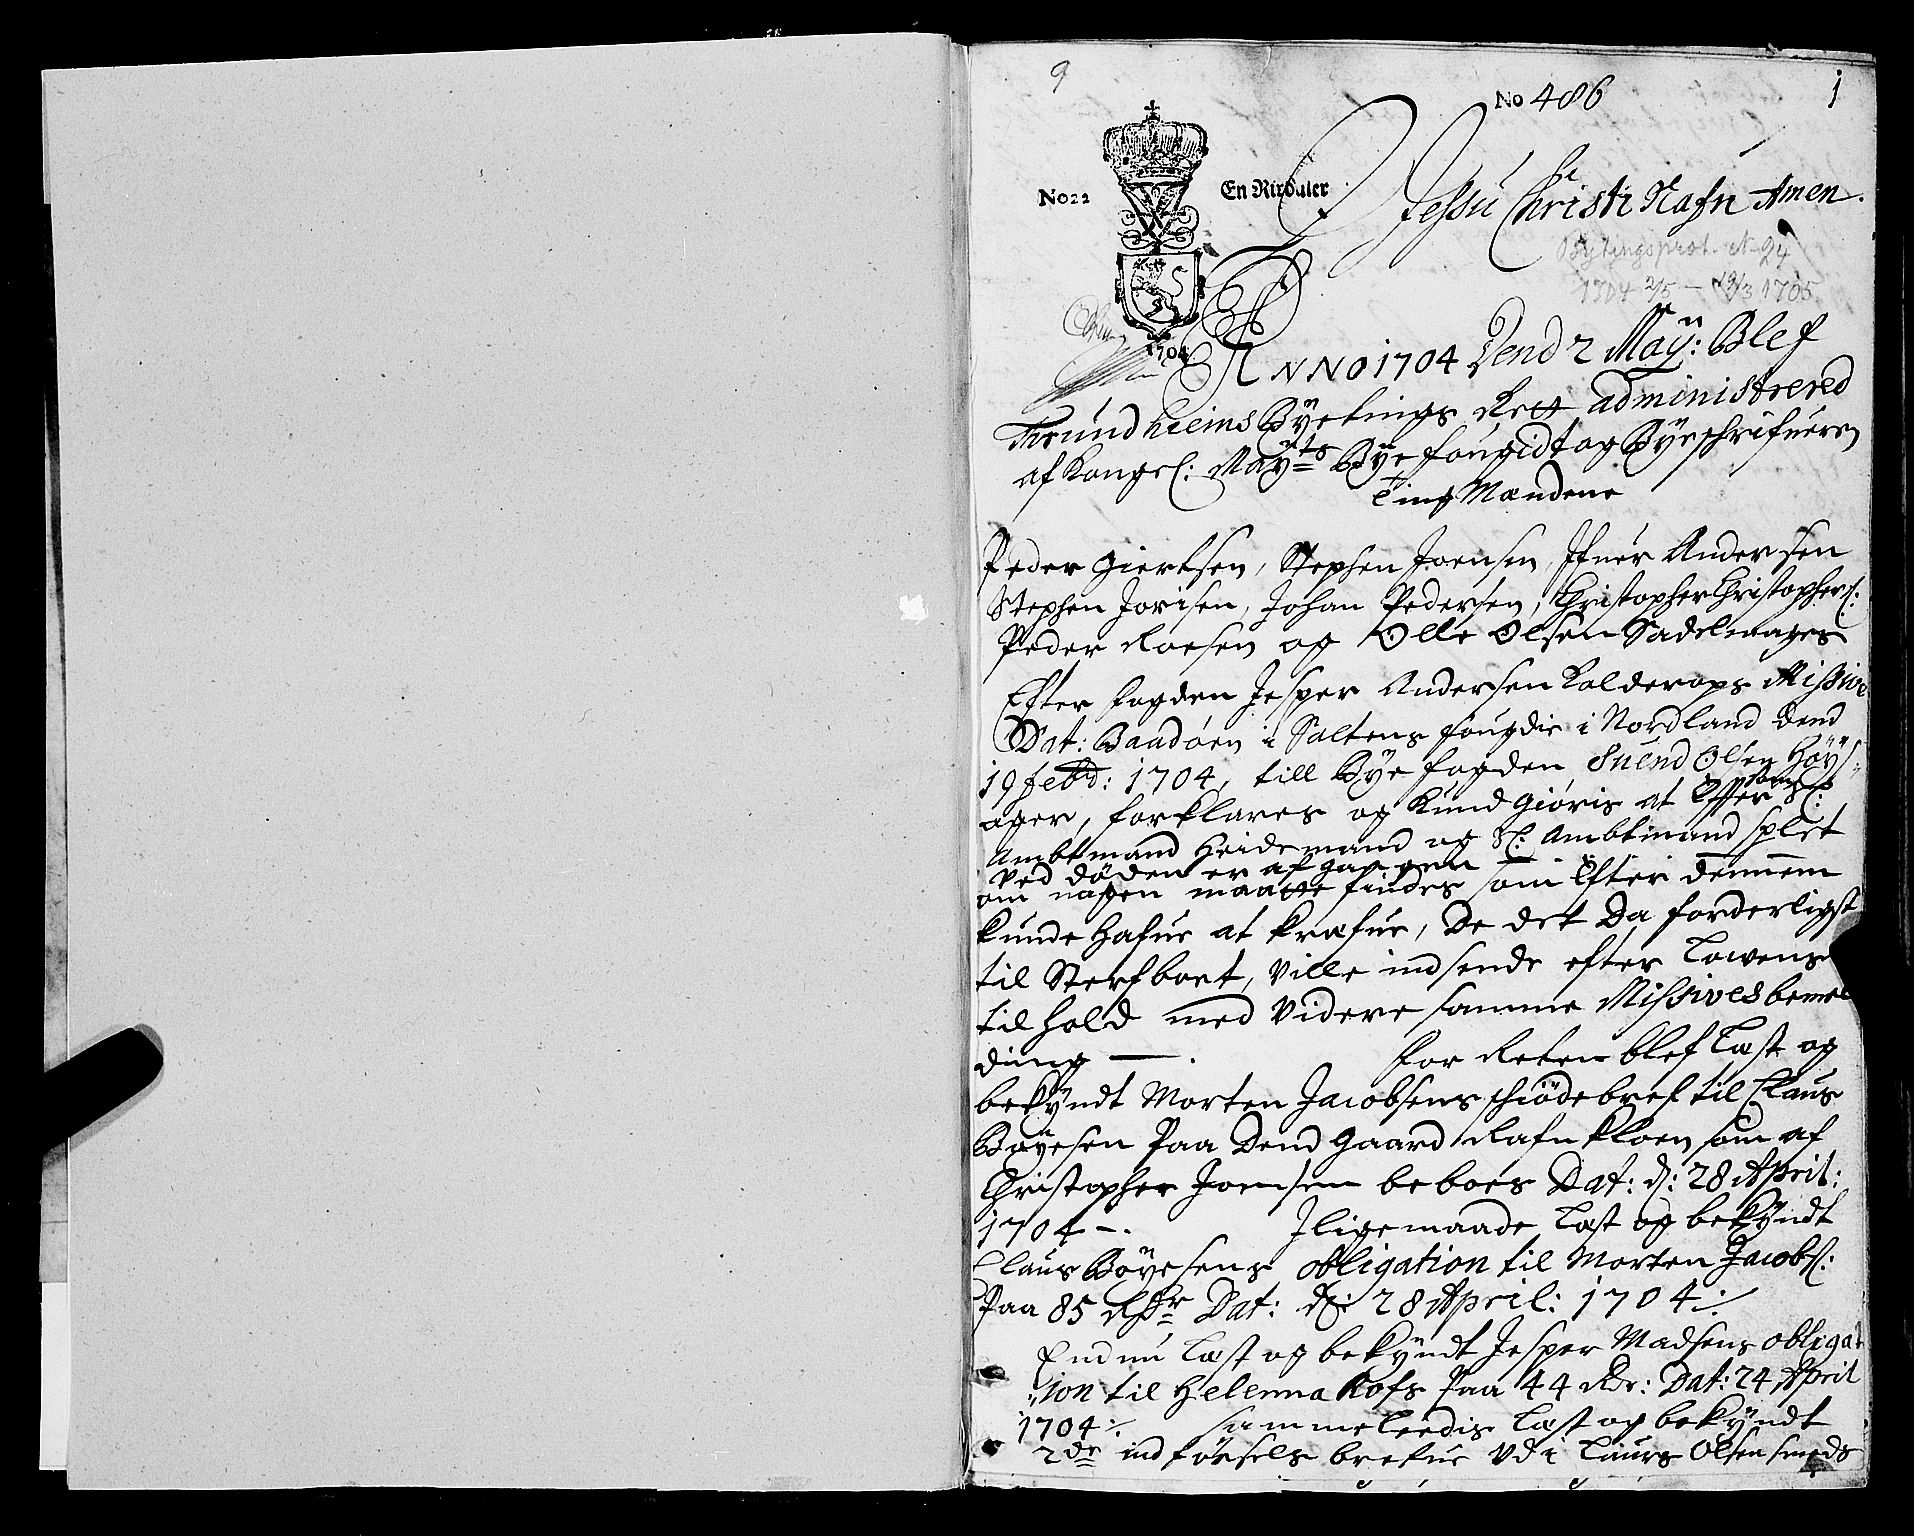 9
No 486
1
No 22
En Rixdaler
J Jessu Christi Nafn Amen.
Bytingsprot. No 24
1704 2/5 – 1705
1704
ANNO 1704 Dend 2 Maÿ: Blef
Trundhiems Byetings Rett administrered
af Kongel: Maÿts Bÿe fougidt og Bÿeschrifueren
Ting Mændene
Peder Giertsen, Stephen Joensen, Ifuer Andersen
Stephen Jorisen, Johan Pedersen, Christopher Christophers:
Peder Roesen og Olle Olsen Sadelmager
Efter fogden Jesper Andersen Kolderops Missive
Dat: Baadøen i Saltens fougdie i Nordland Dend
19 febr: 1704, till Bÿe fogden Suend Olsen Høÿs-
ager, forklares og Kundgiøris at Effter som Sl:
Ambtmand Heidemand og Sl: Ambtmand Splet
ved døden er afgangen
om nogen maatte findes som Efter dennem
kunde hafue at kræfue, De det Da forderligst
til Sterfboet, ville indsende efter Lowens
tilhold med videre samme Missives bemel
ding —. for Reten blef Læst og
bekÿndt Morten Jacobsens schiødebref til Claus
Bøÿesen Paa Dend gaard Rafnkloen som af
Christopher Joensen beboes Dat: d: 28 April:
1704 –. Jligemaade Læst og bekÿndt
Claus Bøÿesens obligation til Morten Jacobs:
Paa 85 Rdr Dat: d: 28 April: 1704 ⁒
Endnu Læst og bekÿndt Jesper Madsens obligat
ion til Helenna Kofs Paa 44 Rdr: Dat: 24 April
1704 ⁒ sammeleedis Læst og bekÿndt
2de indførsels brefue Vdi Laurs Olsen smeds